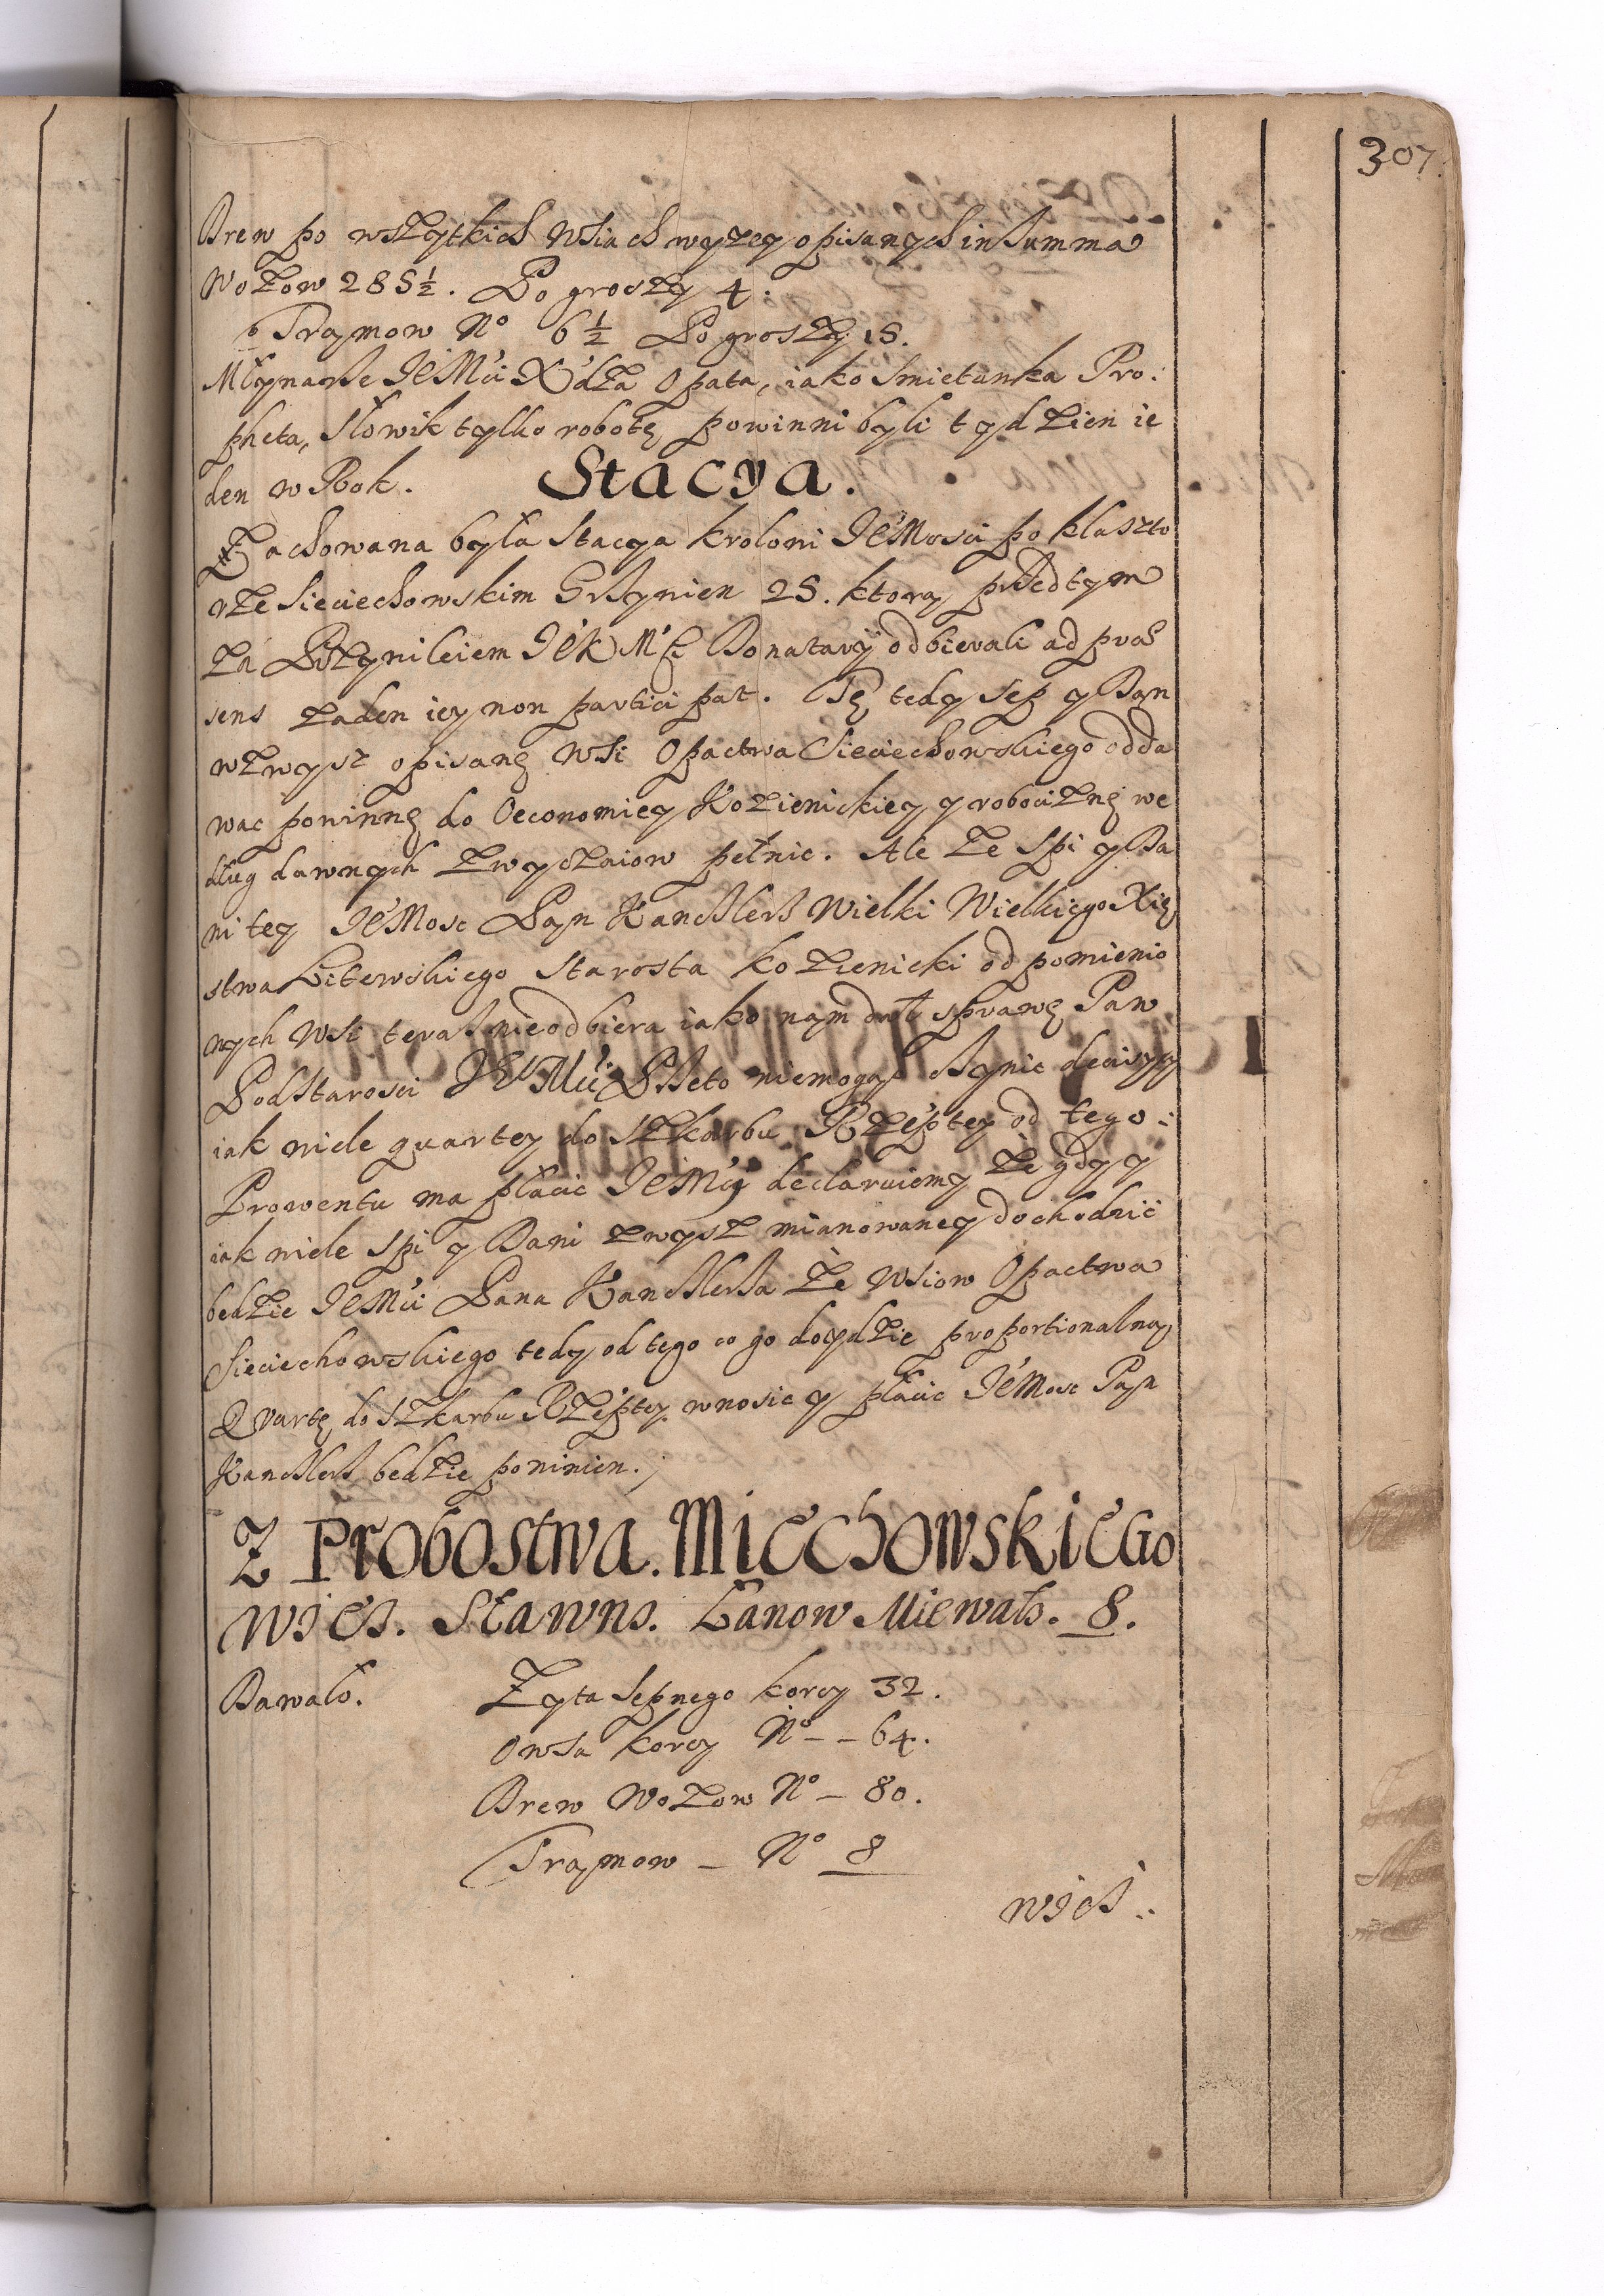 307.
Drew po wszytkich Wsiach wyzey opisanych in Summa
Wozow 285½. Po groszy 4.
Tramow No 6½ Po groszy 15.
Młynarze JeMci Xdza Opata, iako Smietanka Pro:
pheta, Słowik tylko robotę powinni byli tydzien ie
den w Rok. Stacya.
Zachowana była Stacya krolowi JeMosci po klaszto
rze Sieciechowskim Grzywien 25. ktorą przedtym
za Przywileiem JeK Mści Donatarÿ odbierali ad prae
sens zaden iey non participat. Tę tedy Sep y Dan
wzwysz opisanę Wsi Opactwa Sieciechowskiego odda
wac powinnę do Oeconomiey Kozienickiey y robociznę we
dług dawnych zwyczaiow pełnic. Ale ze Spi y Da
ni tey JeMosc Pan Kanclerz Wielki Wielkiego Xię
stwa Litewskiego Starosta kozienicki od pomienio
nych Wsi teraz nie odbiera iako nam dał sprawę Pan
PodStarosci JeMci Przeto niemogąc czynic decisyy
iak wiele quarty do Szkarbu Rzeptey od tego:
Prowentu ma płacic JeMć declaruiemy ze gdy y
iak wiele Spi y Dani zwysz mianowaney dochodzić
będzie JeMci Pana Kanclerza ze Wsiow Opactwa
Sieciechowskiego tedy od tego co go doydzie proportionalną
Quartę do Szkarbu Rzeptey wnosic y płacic JeMosc Pan
Kanclerz będzie powinien.
Z Probostwa. Miechowskiego
Wies. Sławno. Łanow Miewało. 8.
Dawało. Zyta Sepnego korcy 32.
Owsa korcy No -- 64.
Drew Wozow No - 80.
Tramow - No 8
Wies..